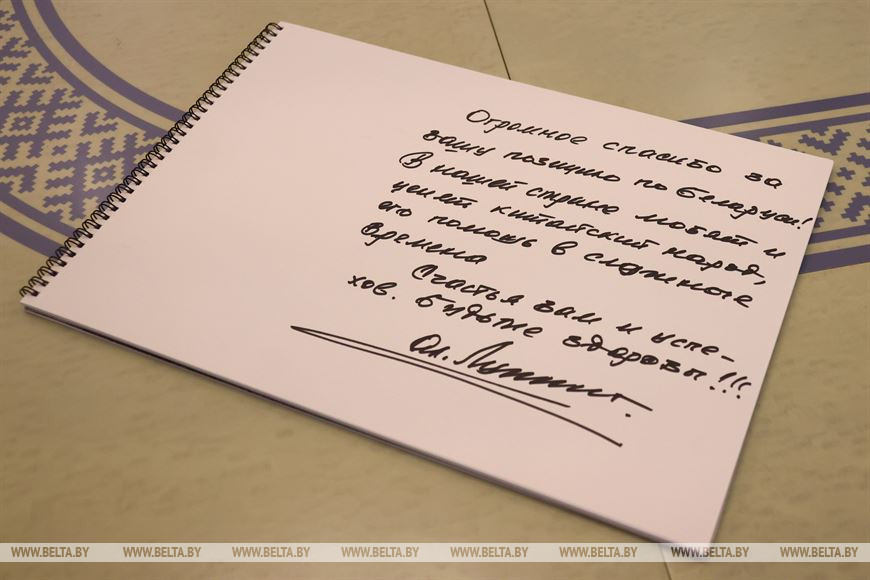 Огромное спасибо за
вашу позицию по Беларуси!
В нашей стране любят и
ценят китайский народ,
его помощь в сложные
времена
Счастья вам и успе-
хов. Будьте здоровы!!!
Ал.
WWW.BELTA.BY WWW.BELTA.BY WWW.BELTA.BY WWW.BELTA.BY WWW.BELTA.BY WWW.BELTA.BY WWW.BELTA.BY WWW.BELTA.BY